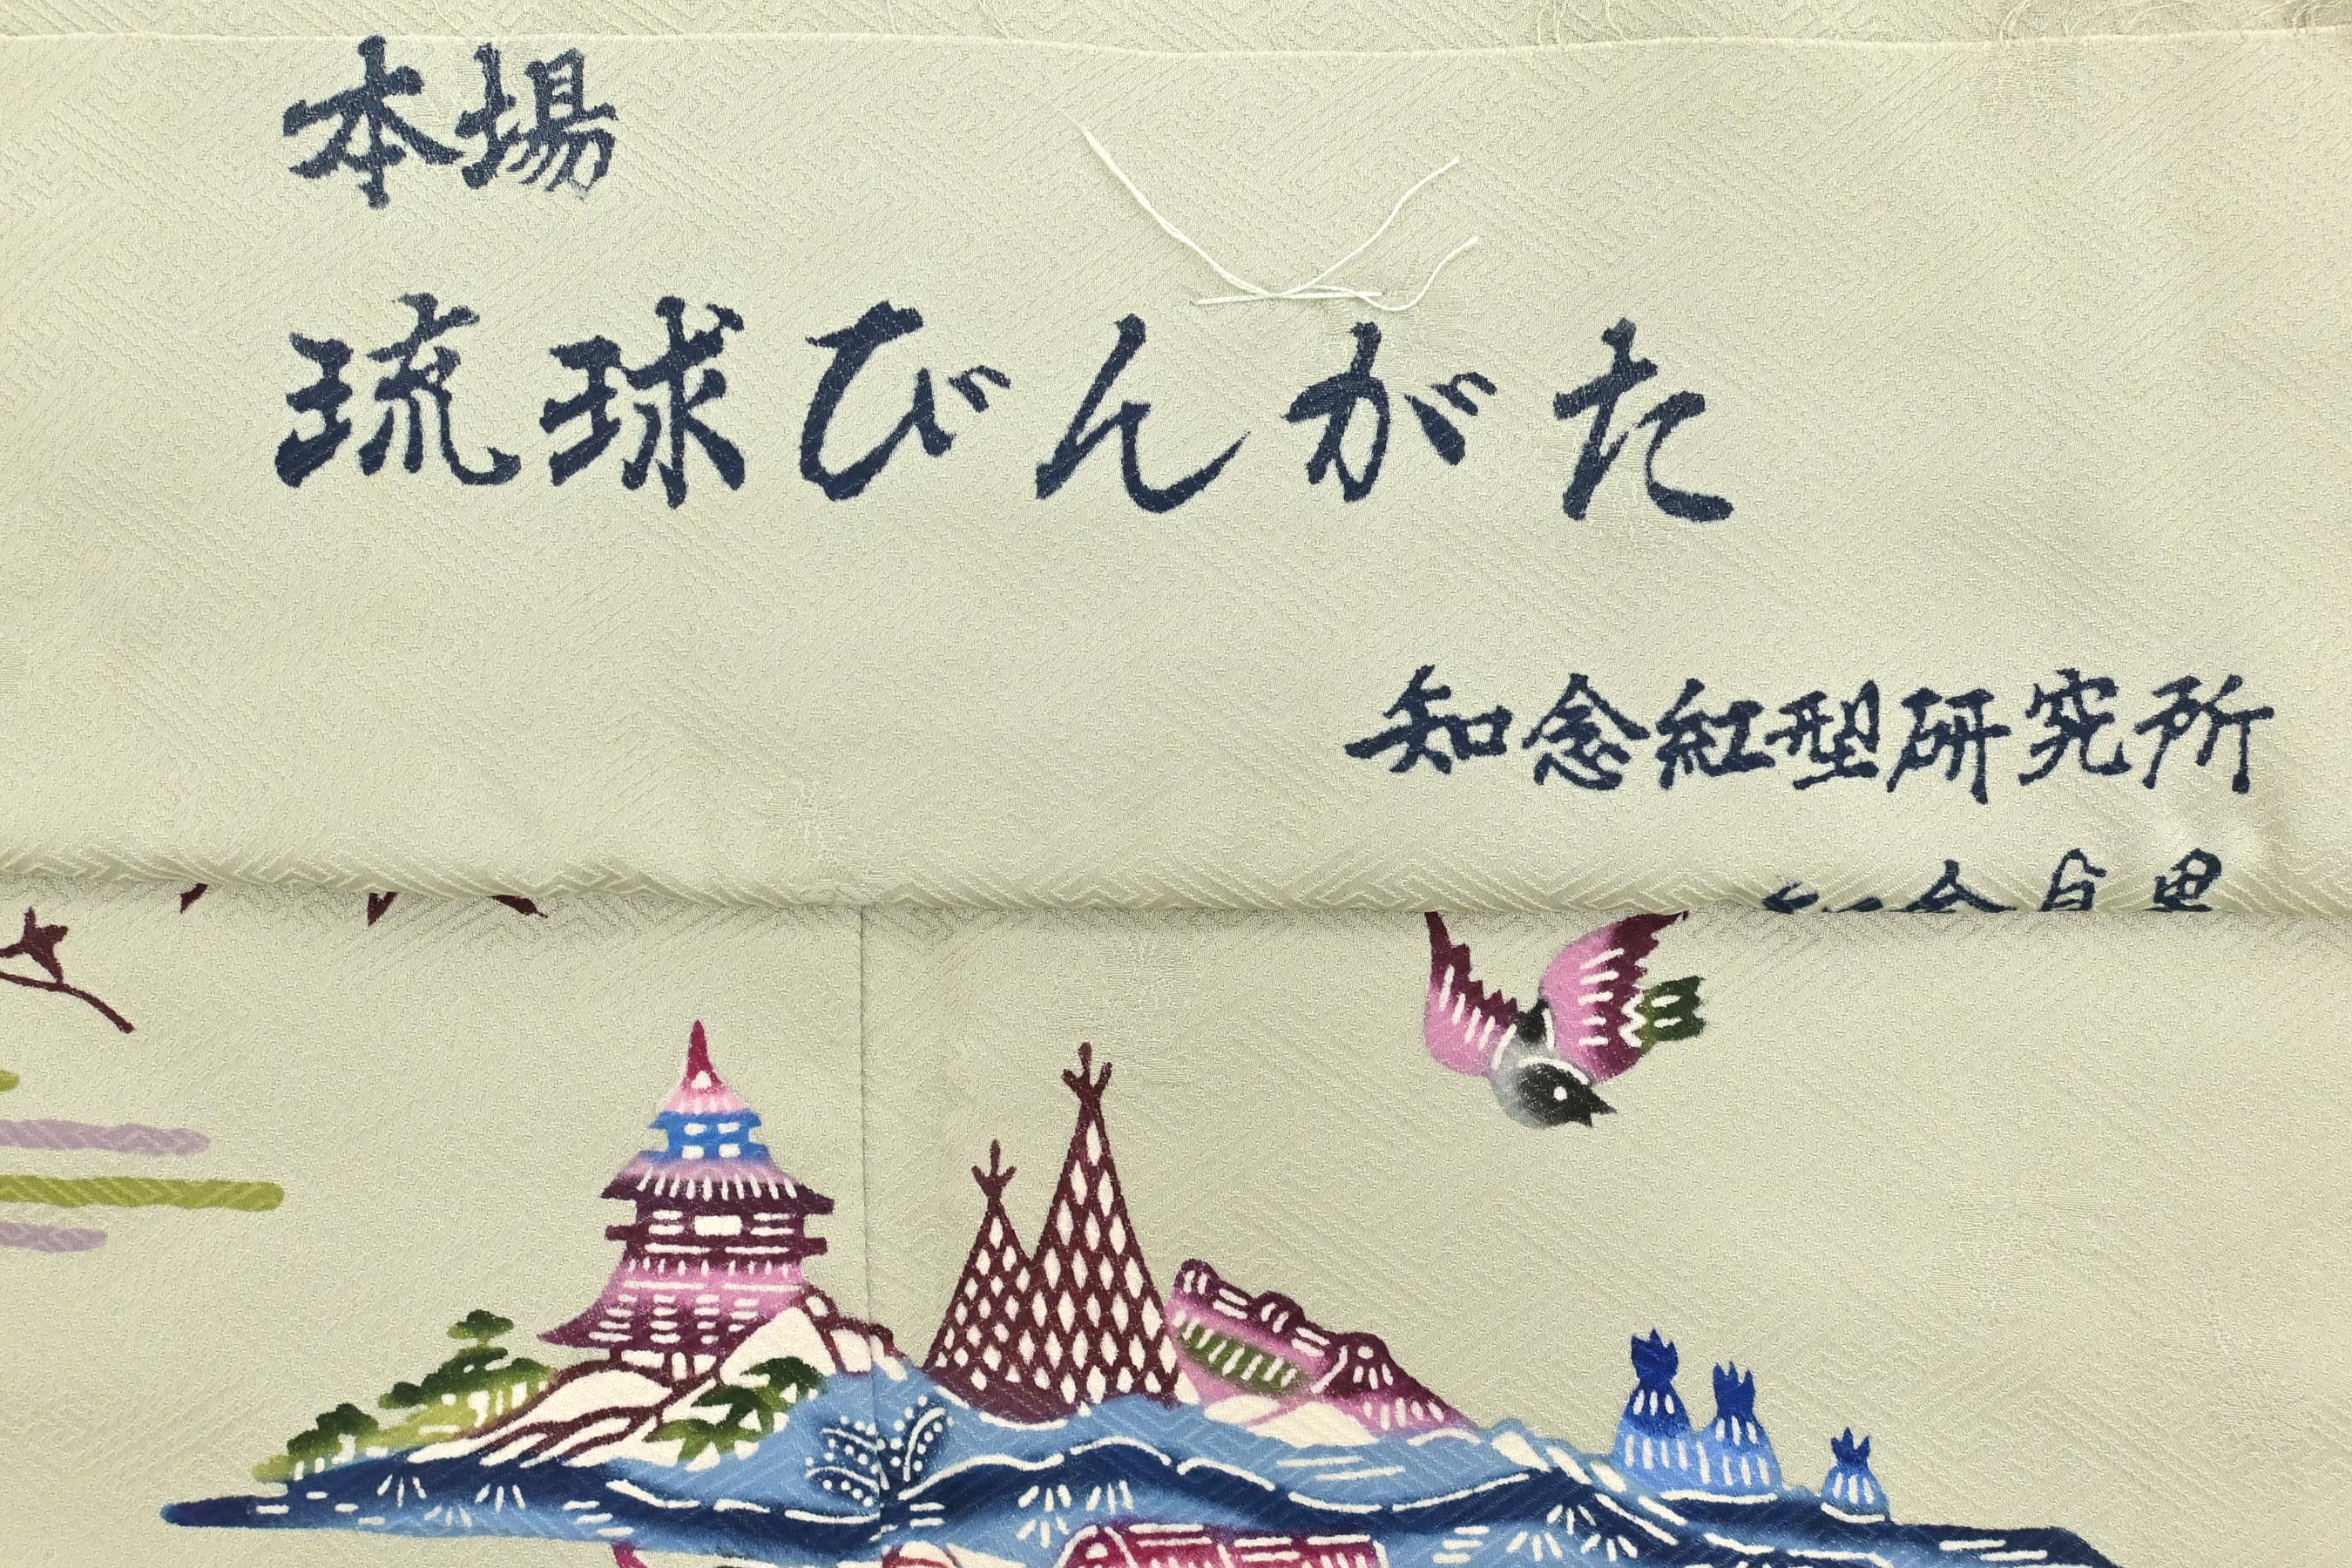 本場
琉球びんがた
知念紅型研究所